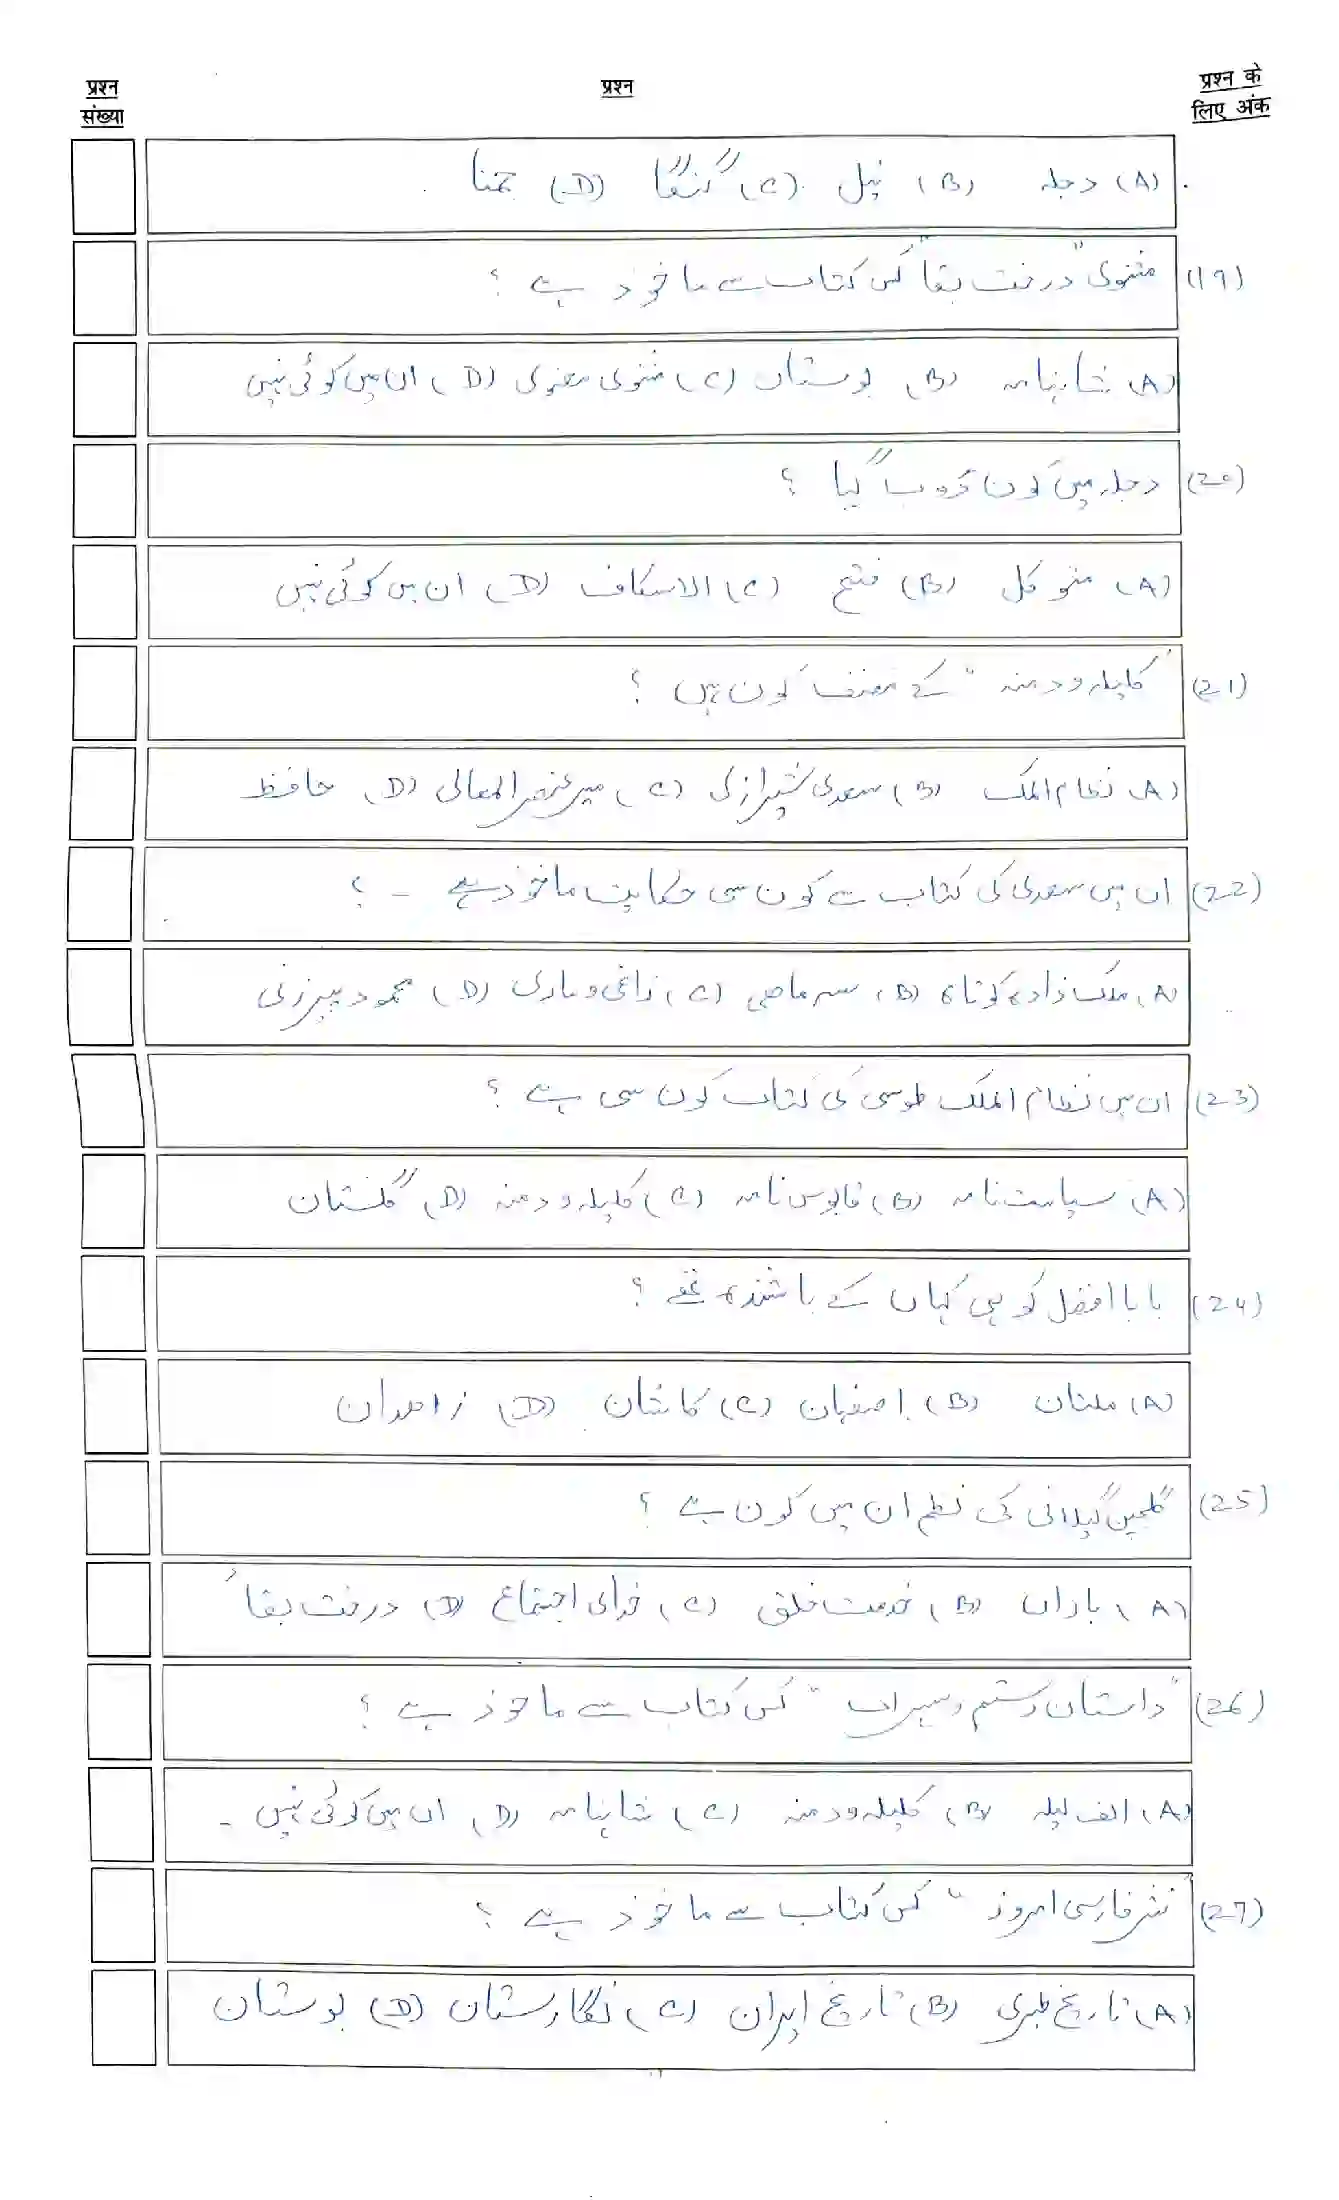 प्रश्न संख्या
प्रश्न
प्रश्न के लिए अंक
(A) دجلہ (B) نیل (C) گنگا (D) جمنا
(19) مثنوی "درخت بقا" کس کتاب سے ماخوذ ہے ؟
(A) شاہنامہ (B) بوستاں (C) مثنوی معنوی (D) ان میں کوئی نہیں
(20) دجلہ میں کون ڈوب گیا ؟
(A) متوکل (B) فتح (C) الاسکاف (D) ان میں کوئی نہیں
(21) "کلیلہ ودمنہ" کے مصنف کون ہیں ؟
(A) نظام الملک (B) سعدی شیرازی (C) میر عنصر المعالی (D) حافظ
(22) ان میں سعدی کی کتاب سے کون سی حکایت ماخوذ ہے - ؟
(A) ملک زادہ کوتاہ (B) سہ ماھی (C) زاغی و ماری (D) محمود و پیرزنی
(23) ان میں نظام الملک طوسی کی کتاب کون سی ہے ؟
(A) سیاست نامہ (B) قابوس نامہ (C) کلیلہ ودمنہ (D) گلستان
(24) بابا افضل کوہی کہاں کے باشندہ تھے ؟
(A) ملتان (B) اصفہان (C) کاشان (D) زاھدان
(25) گلچیں گیلانی کی نظم ان میں کون ہے ؟
(A) باران (B) خدمت خلق (C) خدای اجتماع (D) درخت بقا
(26) "داستان رستم و سہراب" کس کتاب سے ماخوذ ہے ؟
(A) الف لیلہ (B) کلیلہ ودمنہ (C) شاہنامہ (D) ان میں کوئی نہیں -
(27) "نثر فارسی امروز" کس کتاب سے ماخوذ ہے ؟
(A) تاریخ طبری (B) تاریخ ایران (C) نگارستان (D) بوستان